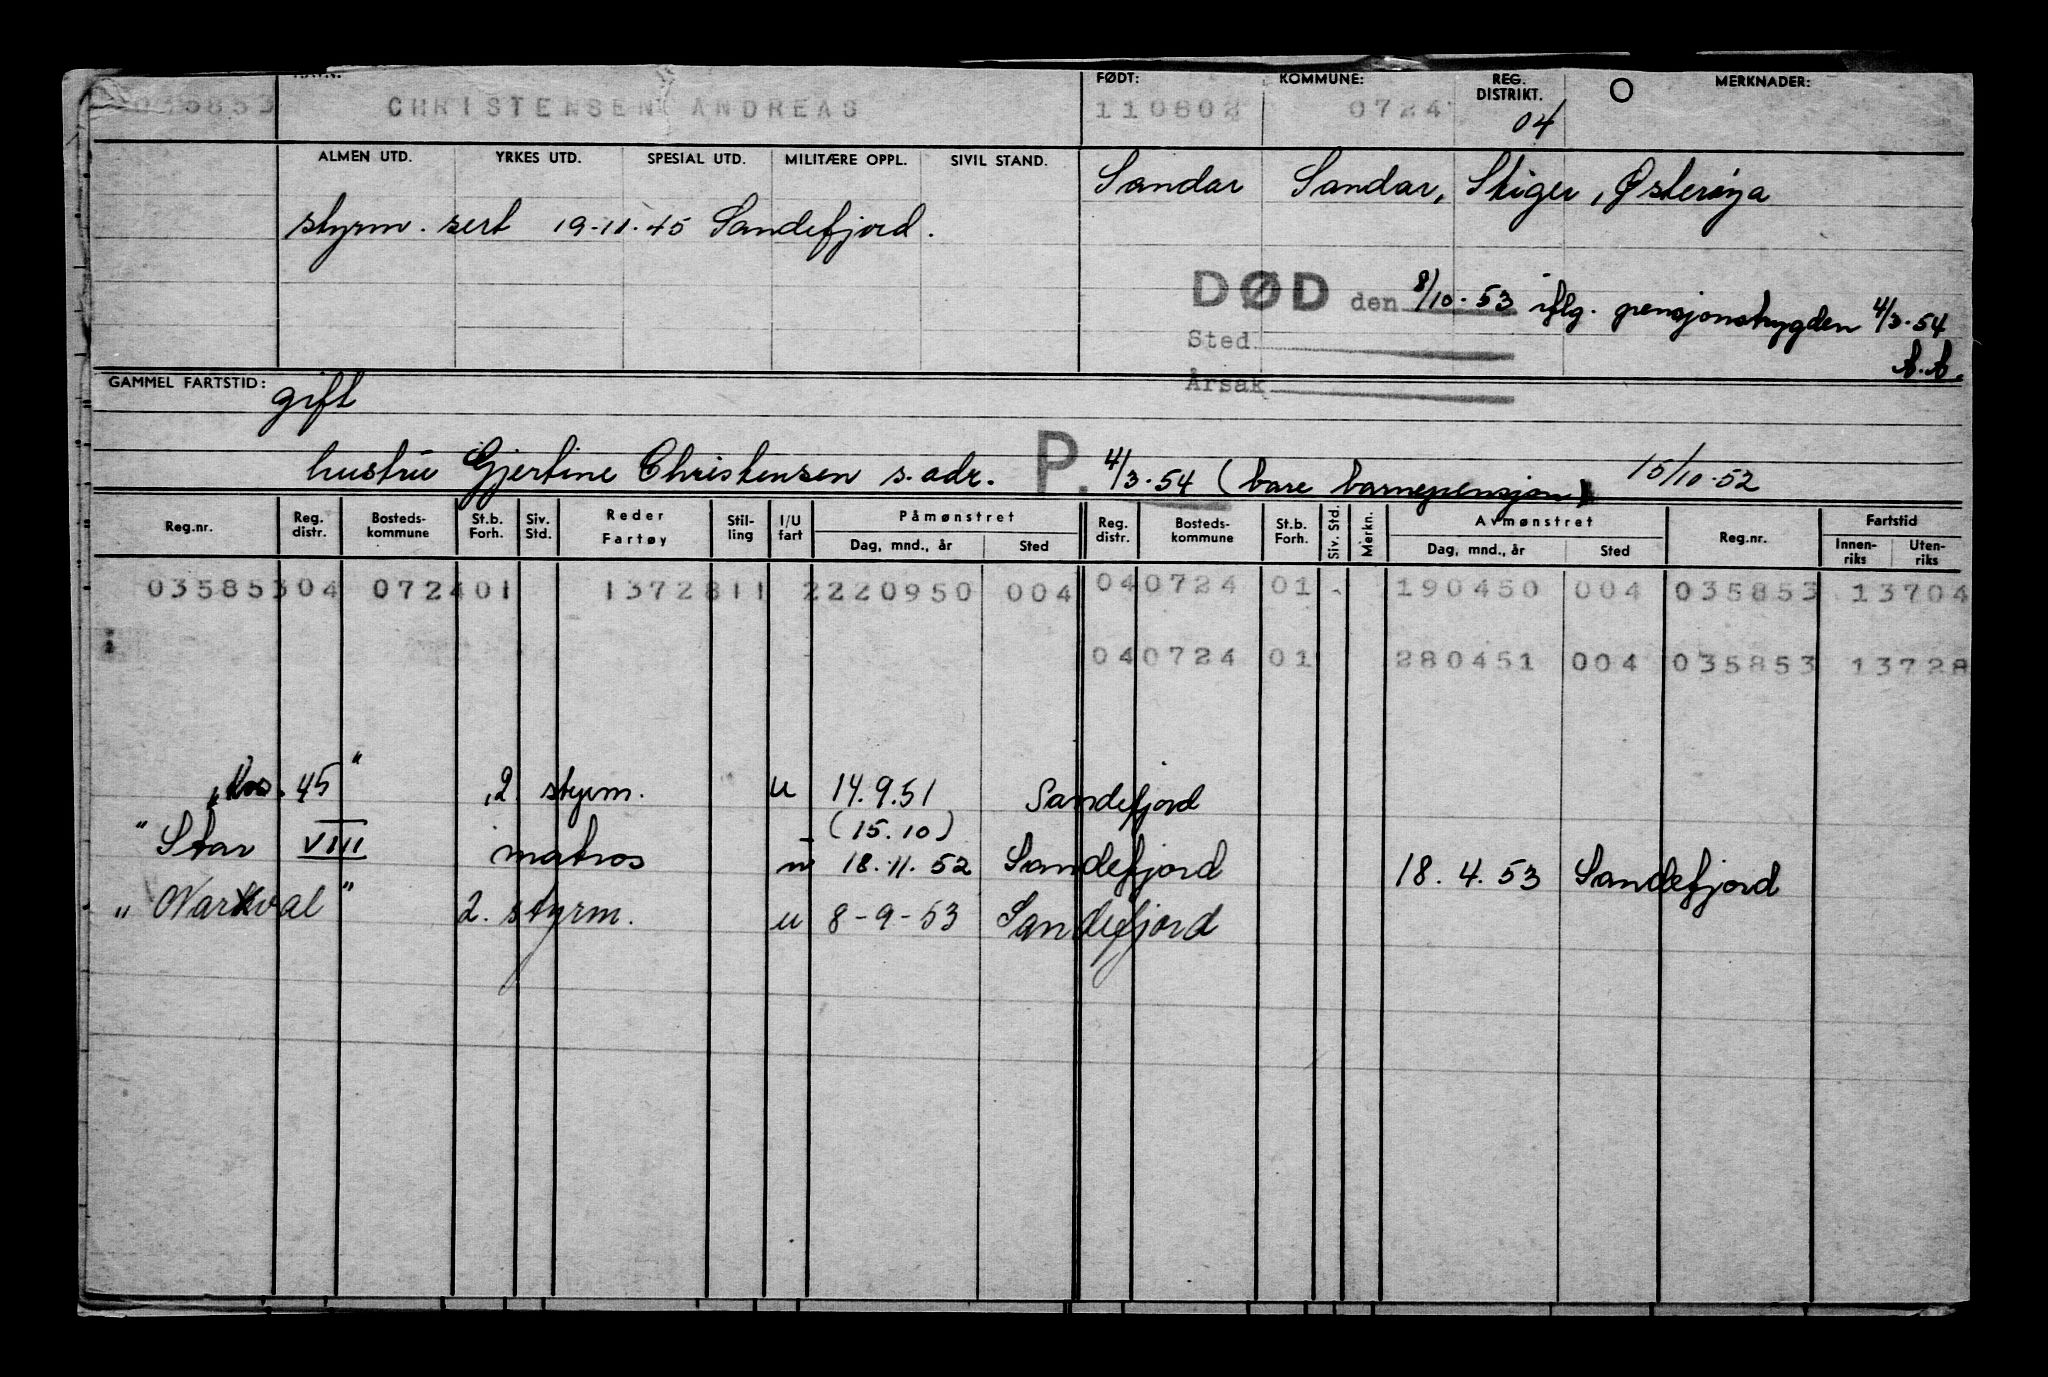 FØDT: KOMMUNE: REG. DISTRIKT. O MERKNADER:
035853 CHRISTENSEN ANDREAS 110802 0724 04
ALMEN UTD. YRKES UTD. SPESIAL UTD. MILITÆRE OPPL. SIVIL STAND.
Sandar Sandar, Skiger, Østerøya
styrm. sert 19-11-45 Sandefjord.
DØD den 8/10-53 iflg. pensjonstrygden 4/3-54
Sted
Årsak
GAMMEL FARTSTID:
gift
hustru Gjertine Christensen s. adr. P. 4/3-54 (bare barnepensjon) 15/10-52
Reg.nr. Reg. distr. Bosteds-kommune St.b. Forh. Siv. Std. Reder Fartøy Stil-ling I/U fart Påmønstret Dag, mnd., år Sted Reg. distr. Bosteds-kommune St.b. Forh. Siv. Std. Merkn. Avmønstret Dag, mnd., år Sted Reg.nr. Fartstid Innen-riks Uten-riks
035853 04 0724 01 13728 11 2 220950 004 04 0724 01 190450 004 035853 13704
04 0724 01 280451 004 035853 13728
45" 2. styrm. u 14.9.51 Sandefjord
(15.10)
"Star VIII matros u 18.11.52 Sandefjord 18.4.53 Sandefjord
"Narhval" 2. styrm. u 8-9-53 Sandefjord